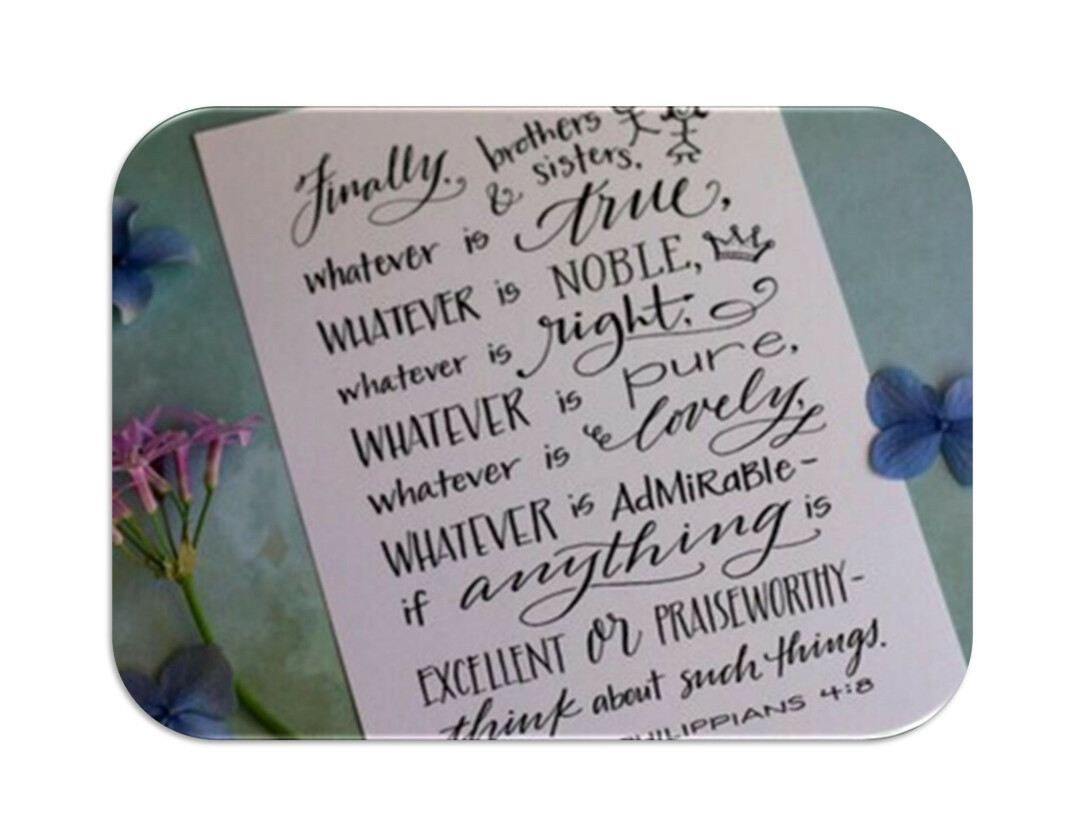 Finally, brothers
& sisters,
whatever is true,
WHATEVER is NOBLE,
whatever is right,
WHATEVER is pure,
whatever is lovely,
WHATEVER is AdMiRaBle-
if anything is
EXCELLENT or PRAISEWORTHY-
think about such things.
PHILIPPIANS 4:8